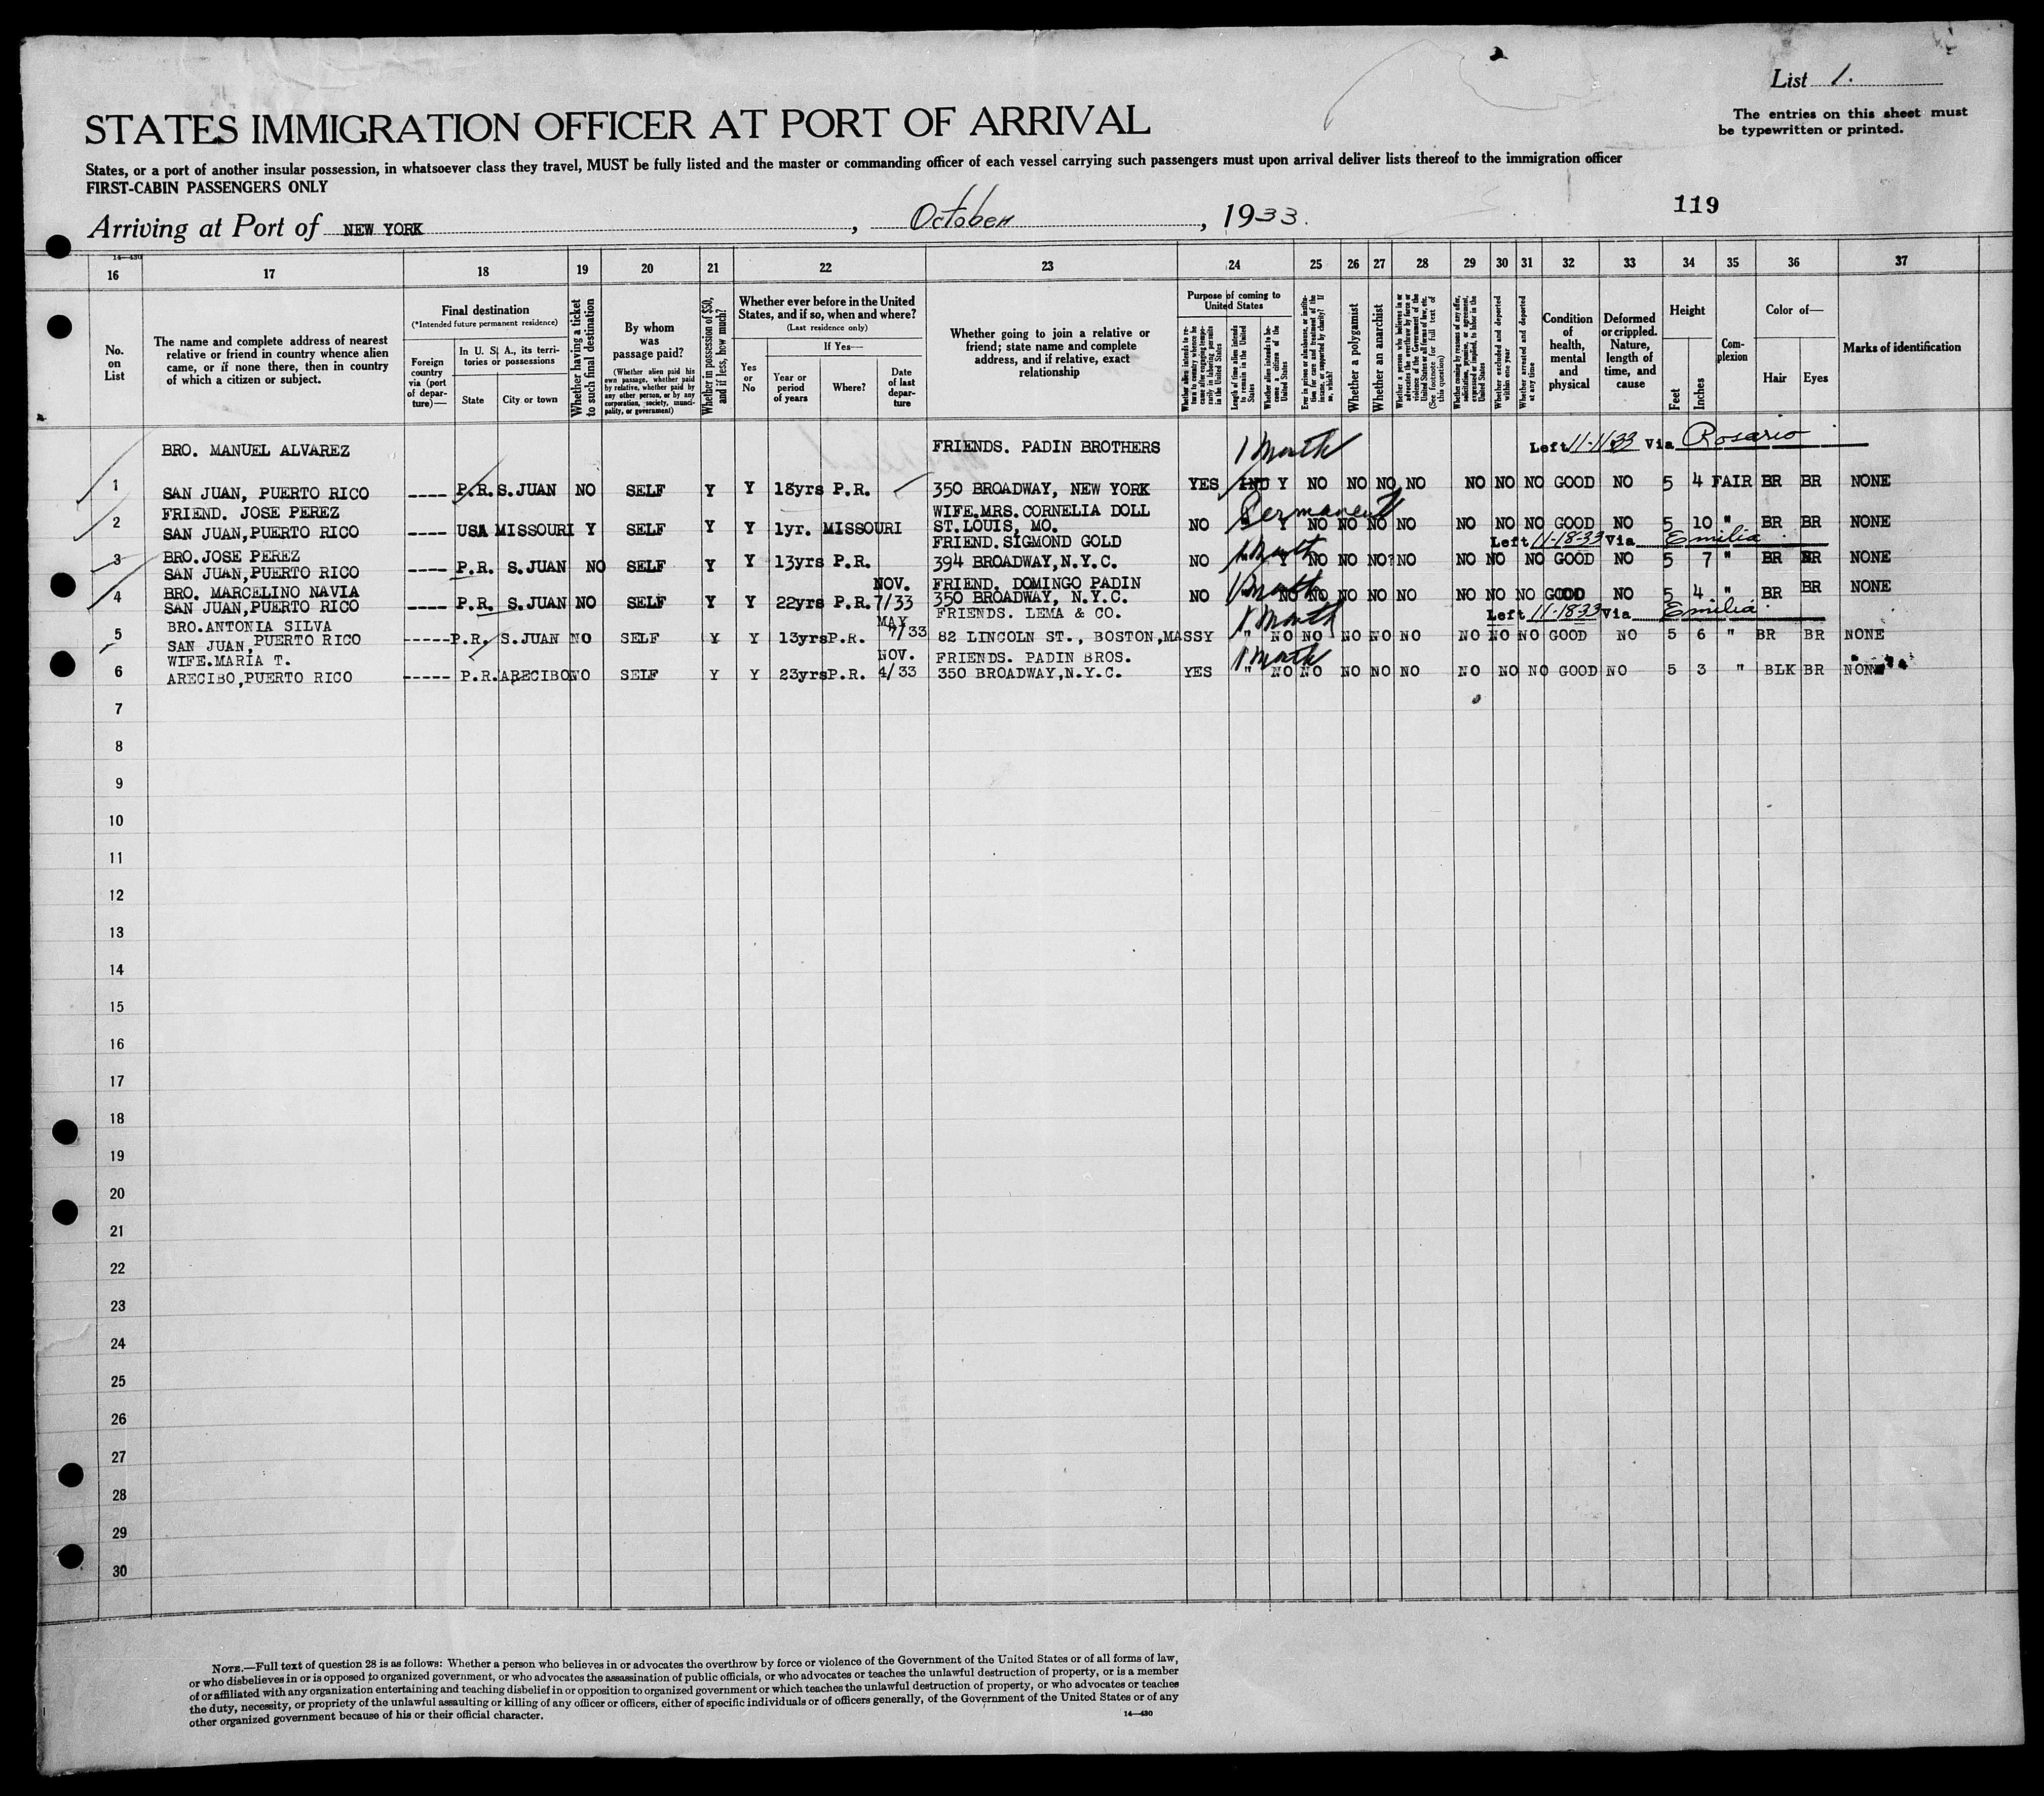 List 1.
The entries on this sheet must
be typewritten or printed.
STATES IMMIGRATION OFFICER AT PORT OF ARRIVAL
States, or a port of another insular possession, in whatsoever class they travel, MUST be fully listed and the master or commanding officer of each vessel carrying such passengers must upon arrival deliver lists thereof to the immigration officer
FIRST-CABIN PASSENGERS ONLY
119
Arriving at Port of NEW YORK, October, 1933.
14—430
16 17 18 19 20 21 22 23 24 25 26 27 28 29 30 31 32 33 34 35 36 37
No. on List
The name and complete address of nearest relative or friend in country whence alien came, or if none there, then in country of which a citizen or subject.
Final destination
(*Intended future permanent residence)
Foreign country via (port of departure)—
In U. S. A., its territories or possessions
State
City or town
Whether having a ticket to such final destination
By whom was passage paid?
(Whether alien paid his own passage, whether paid by relative, whether paid by any other person, or by any corporation, society, municipality, or government)
Whether in possession of $50, and if less, how much?
Whether ever before in the United States, and if so, when and where?
(Last residence only)
Yes or No
If Yes—
Year or period of years
Where?
Date of last departure
Whether going to join a relative or friend; state name and complete address, and if relative, exact relationship
Purpose of coming to United States
Whether alien intends to return to country whence he came after engaging temporarily in laboring pursuits in the United States
Length of time alien intends to remain in the United States
Whether alien intends to become a citizen of the United States
Ever in prison or almshouse, or institution for care and treatment of the insane, or supported by charity? If so, which?
Whether a polygamist
Whether an anarchist
Whether a person who believes in or advocates the overthrow by force or violence of the Government of the United States or all forms of law, etc. (See footnote for full text of this question)
Whether coming by reason of any offer, solicitation, promise, or agreement, expressed or implied, to labor in the United States
Whether excluded and deported within one year
Whether arrested and deported at any time
Condition of health, mental and physical
Deformed or crippled. Nature, length of time, and cause
Height
Feet
Inches
Complexion
Color of—
Hair
Eyes
Marks of identification
BRO. MANUEL ALVAREZ FRIENDS. PADIN BROTHERS 1 Month Left 11-1-33 Via Rosario
1 SAN JUAN, PUERTO RICO ---- P.R. S.JUAN NO SELF Y Y 18yrs P.R. 350 BROADWAY, NEW YORK YES IND Y NO NO NO NO NO NO NO GOOD NO 5 4 FAIR BR BR NONE
FRIEND. JOSE PEREZ WIFE.MRS.CORNELIA DOLL Permanent
2 SAN JUAN,PUERTO RICO ---- USA MISSOURI Y SELF Y Y 1yr. MISSOURI ST.LOUIS, MO. NO " Y NO NO NO NO NO NO NO GOOD NO 5 10 " BR BR NONE
FRIEND.SIGMOND GOLD Left 11-18-33 Via Emilia
3 BRO.JOSE PEREZ
SAN JUAN,PUERTO RICO ---- P.R. S.JUAN NO SELF Y Y 13yrs P.R. 394 BROADWAY,N.Y.C. NO 1 Month Y NO NO NO NO NO NO NO GOOD NO 5 7 " BR BR NONE
BRO. MARCELINO NAVIA NOV. FRIEND. DOMINGO PADIN
4 SAN JUAN,PUERTO RICO ---- P.R. S.JUAN NO SELF Y Y 22yrs P.R. 7/33 350 BROADWAY, N.Y.C. NO 1 Month NO NO NO NO NO NO NO NO GOOD NO 5 4 " BR BR NONE
BRO.ANTONIA SILVA MAY FRIENDS. LEMA & CO. 1 Month Left 11-18-33 Via Emilia
5 SAN JUAN,PUERTO RICO ----- P.R. S.JUAN NO SELF Y Y 13yrs P.R. 7/33 82 LINCOLN ST., BOSTON,MASSY " NO NO NO NO NO NO NO NO GOOD NO 5 6 " BR BR NONE
WIFE.MARIA T. NOV. FRIENDS. PADIN BROS. 1 Month
6 ARECIBO,PUERTO RICO ----- P.R. ARECIBO NO SELF Y Y 23yrs P.R. 4/33 350 BROADWAY,N.Y.C. YES " NO NO NO NO NO NO NO NO GOOD NO 5 3 " BLK BR NONE
7
8
9
10
11
12
13
14
15
16
17
18
19
20
21
22
23
24
25
26
27
28
29
30
NOTE.—Full text of question 28 is as follows: Whether a person who believes in or advocates the overthrow by force or violence of the Government of the United States or of all forms of law,
or who disbelieves in or is opposed to organized government, or who advocates the assassination of public officials, or who advocates or teaches the unlawful destruction of property, or is a member
of or affiliated with any organization entertaining and teaching disbelief in or opposition to organized government or which teaches the unlawful destruction of property, or who advocates or teaches
the duty, necessity, or propriety of the unlawful assaulting or killing of any officer or officers, either of specific individuals or of officers generally, of the Government of the United States or of any
other organized government because of his or their official character.
14—430